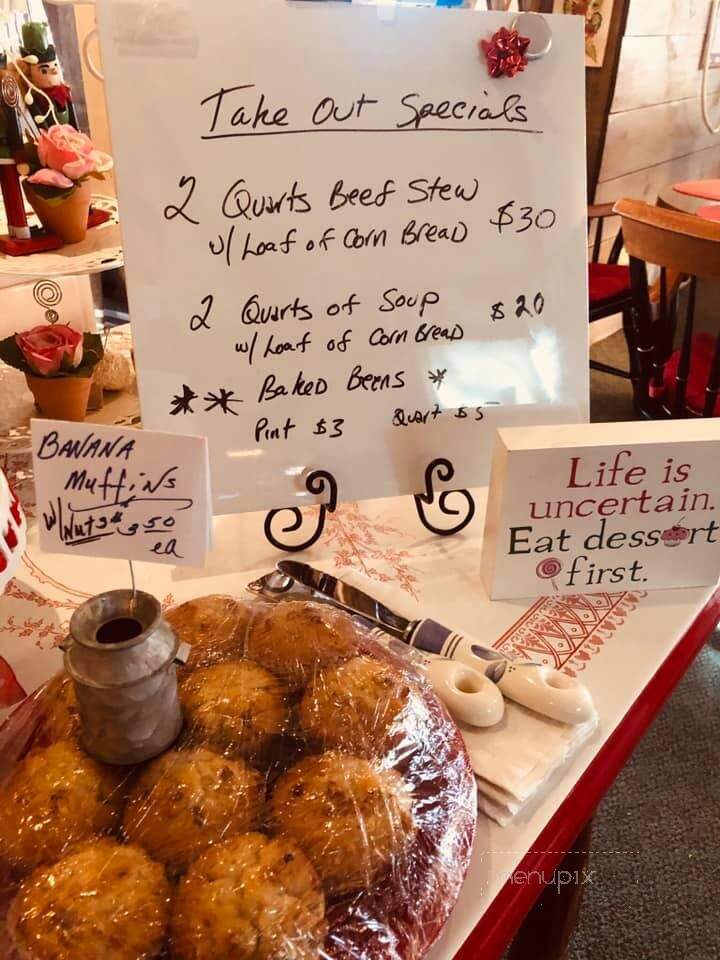 Take Out Specials
2 Quarts Beef Stew
w/ Loaf of Corn Bread $30
2 Quarts of Soup $20
w/ Loaf of Corn Bread
** Baked Beens *
Pint $3 Quart $5
BANANA
Muffins
w/ Nuts
50
ea
Life is
uncertain.
Eat dessert
first.
menupix